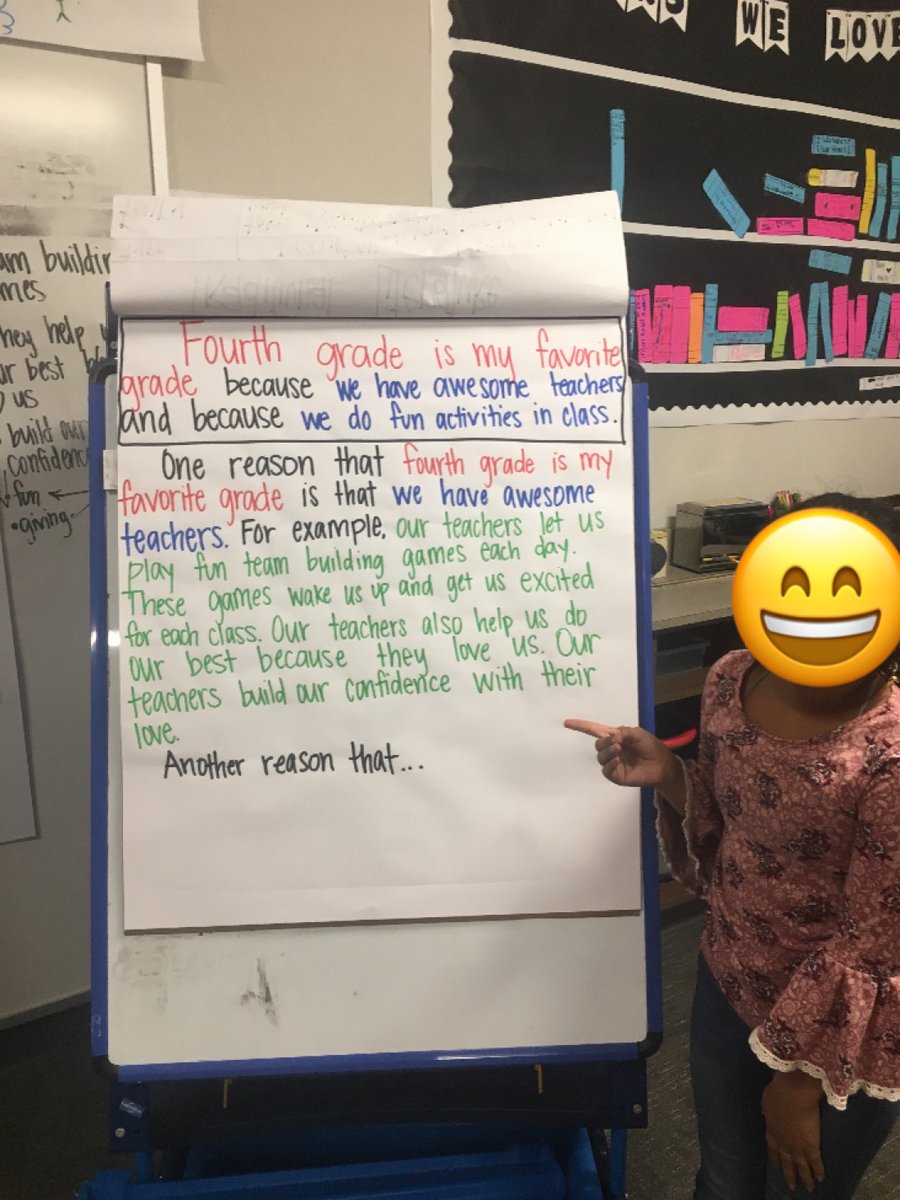 WE LOVE
am buildin
mes
hey help
ur best
us
build our
confidence
fun
•giving
Fourth grade is my favorite
grade because we have awesome teachers
and because we do fun activities in class.
One reason that fourth grade is my
favorite grade is that we have awesome
teachers. For example, our teachers let us
play fun team building games each day.
These games wake us up and get us excited
for each class. Our teachers also help us do
our best because they love us. Our
teachers build our confidence with their
love.
Another reason that...